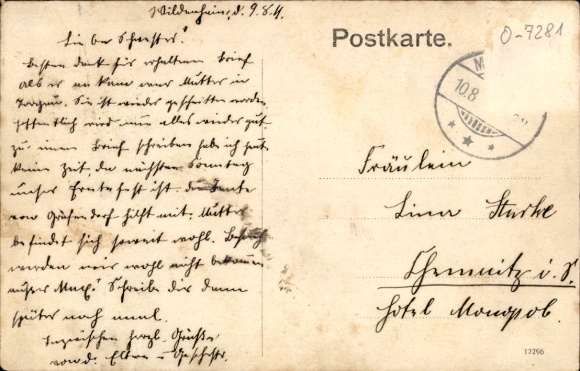 Wildenhain, d. 9.8.11.
Liebe Schwester!
Besten Dank für erhaltenen Brief
als er an kam war Mutter in
Torgau. Sie ist wieder geschnitten worden
hoffentlich wird nun alles wieder gut.
zu einen Brief schreiben habe ich heute
keine Zeit, da nächsten Sonntag
unser Erntefest ist. die Tante
von Gräfendorf hilft mit. Mutter
befindet sich soweit wohl. Besuch
werden wir wohl nicht bekommen
außer Max. Schreibe dir dann
später noch mal.
Inzwischen herzl. Grüße
von d. Eltern u. Geschstr.
Postkarte.
O-7281
10.8
Fräulein
Lina Starke
Chemnitz i. S.
Hotel Monopol.
17296